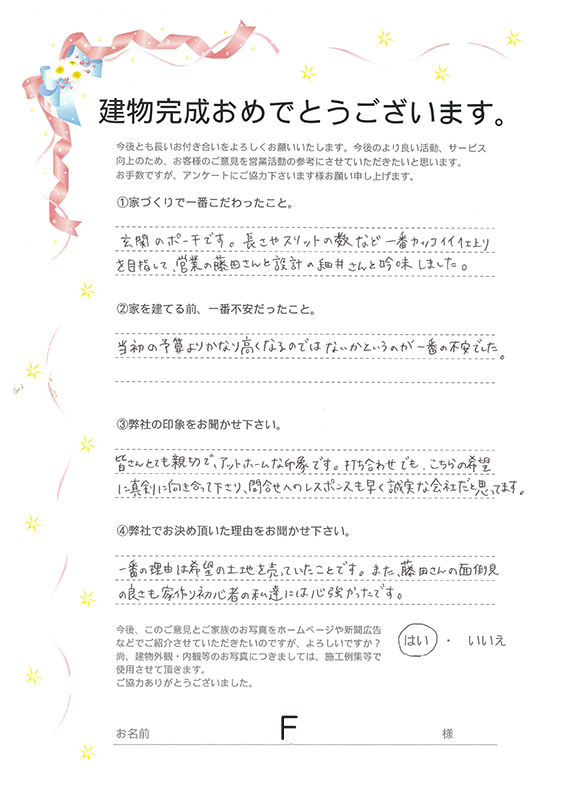 建物完成おめでとうございます。
今後とも長いお付き合いをよろしくお願いいたします。今後のより良い活動、サービス
向上のため、お客様のご意見を営業活動の参考にさせていただきたいと思います。
お手数ですが、アンケートにご協力下さいます様お願い申し上げます。
①家づくりで一番こだわったこと。
玄関のポーチです。長さやスリットの数など一番カッコイイ仕上り
を目指して、営業の藤田さんと設計の細井さんと吟味しました。
②家を建てる前、一番不安だったこと。
当初の予算よりかなり高くなるのではないかというのが一番の不安でした。
③弊社の印象をお聞かせ下さい。
皆さんとても親切で、アットホームな印象です。打ち合わせでも、こちらの希望
に真剣に向き合って下さり、問合せへのレスポンスも早く誠実な会社だと思ってます。
④弊社でお決め頂いた理由をお聞かせ下さい。
一番の理由は希望の土地を売っていたことです。また、藤田さんの面倒見
の良さも家作り初心者の私達には心強かったです。
今後、このご意見とご家族のお写真をホームページや新聞広告
などでご紹介させていただきたいのですが、よろしいですか？
尚、建物外観・内観等のお写真につきましては、施工例集等で
使用させて頂きます。
ご協力ありがとうございました。
はい ・ いいえ
お名前 F 様